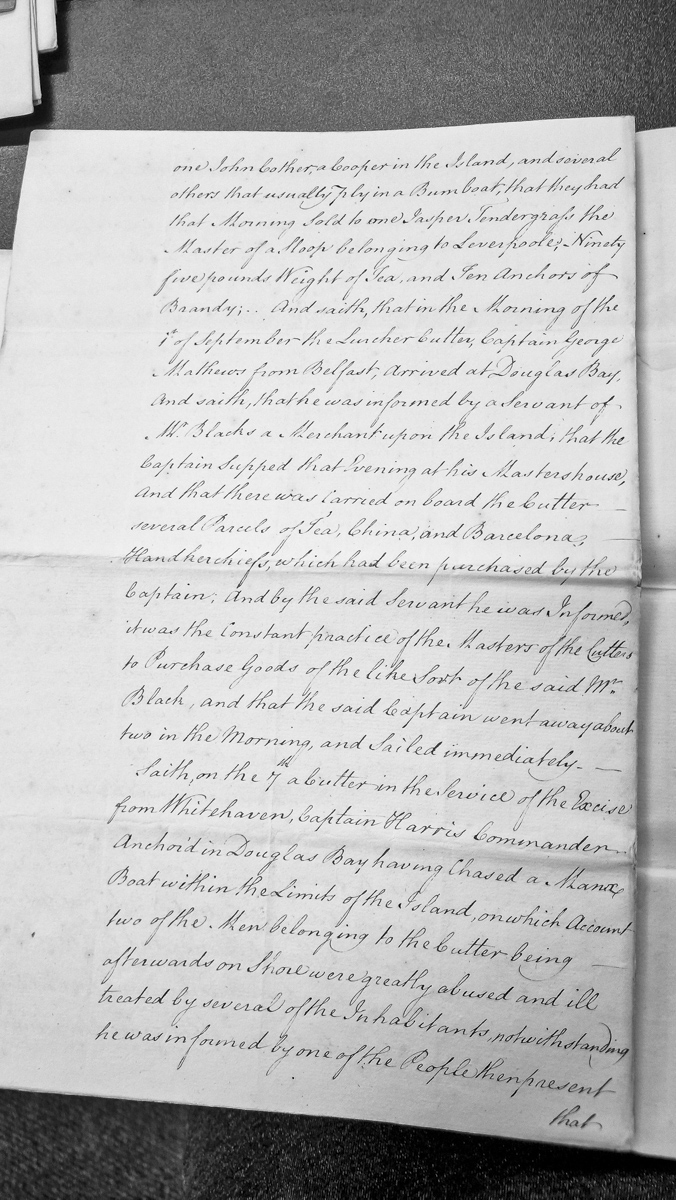 one John Cother, a Cooper in the Island, and several
others that usually ply in a Bumboat, that they had
that Morning Sold to one Jasper Tendergrass the
Master of a Sloop belonging to Leverpoole, Ninety
five pounds Weight of Tea, and Ten Anchors of
Brandy;.. And saith, that in the Morning of the
1st of September the Lurcher Cutter, Captain George
Mathews from Belfast, Arrived at Douglas Bay,
And saith, that he was informed by a Servant of
Mr. Blacks a Merchant upon the Island; that the
Captain Supped that Evening at his Masters house,
And that there was Carried on board the Cutter —
several Parcels of Tea, China, and Barcelona, —
Handkerchiefs, which had been purchased by the
Captain; And by the said Servant he was Informed,
it was the Constant practice of the Masters of the Cutters
to Purchase Goods of the like Sort of the said Mr.
Black, and that the said Captain went away about
two in the Morning, and Sailed immediately. —
Saith, on the 7th a Cutter in the Service of the Excise
from Whitehaven, Captain Harris Commander —
Anchor'd in Douglas Bay having Chased a Manx
Boat within the Limits of the Island, on which Account
two of the Men belonging to the Cutter being —
afterwards on Shore were greatly abused and ill
treated by several of the Inhabitants, notwithstanding
he was informed by one of the People then present
that